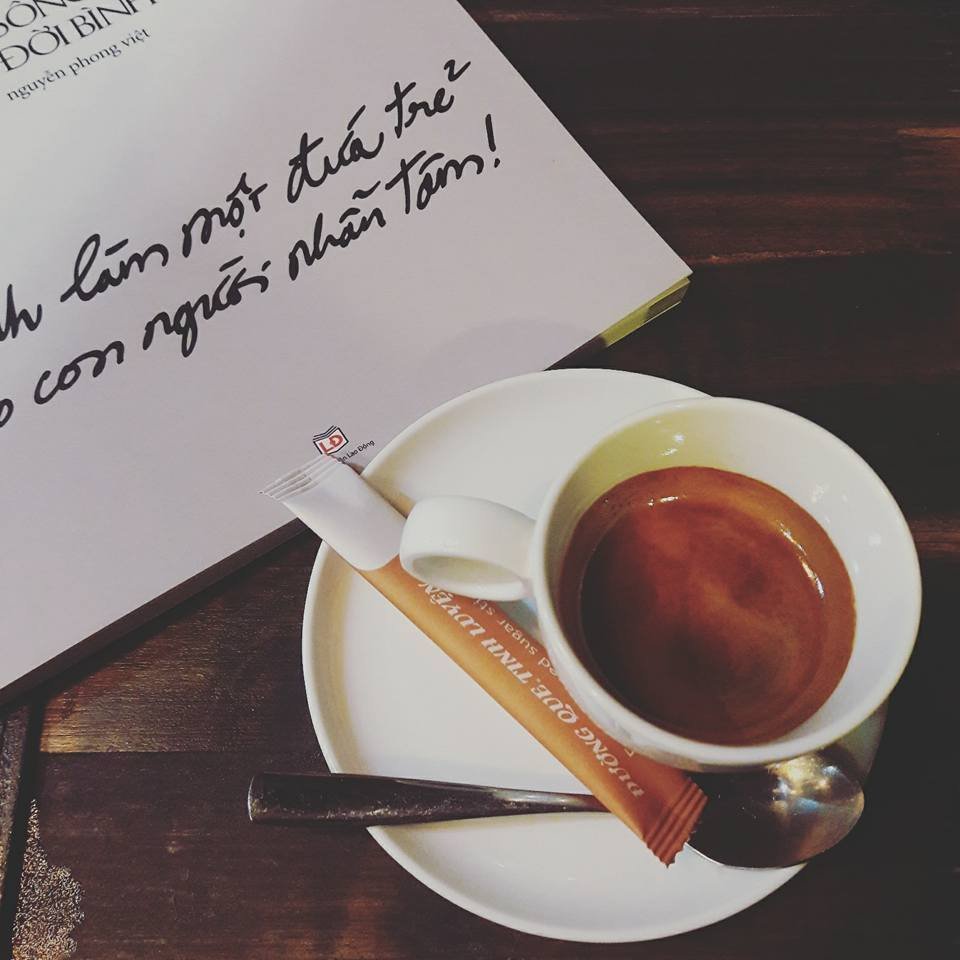 ĐỜI BÌNH
nguyễn phong việt
làm một đứa trẻ
con người nhẫn tâm!
LĐ
Lao Động
ĐƯỜNG QUE TINH LUYỆN
sugar